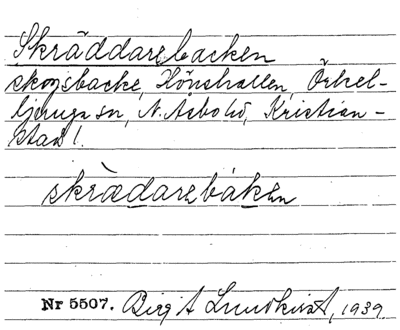 Skräddarebacken
skogsbacke, Hönshallen, Örkel-
ljunga sn, N. Åsbo hd, Kristian-
stad l.
skrædarebakен
Nr 5507. Birgit Lundkvist, 1939.